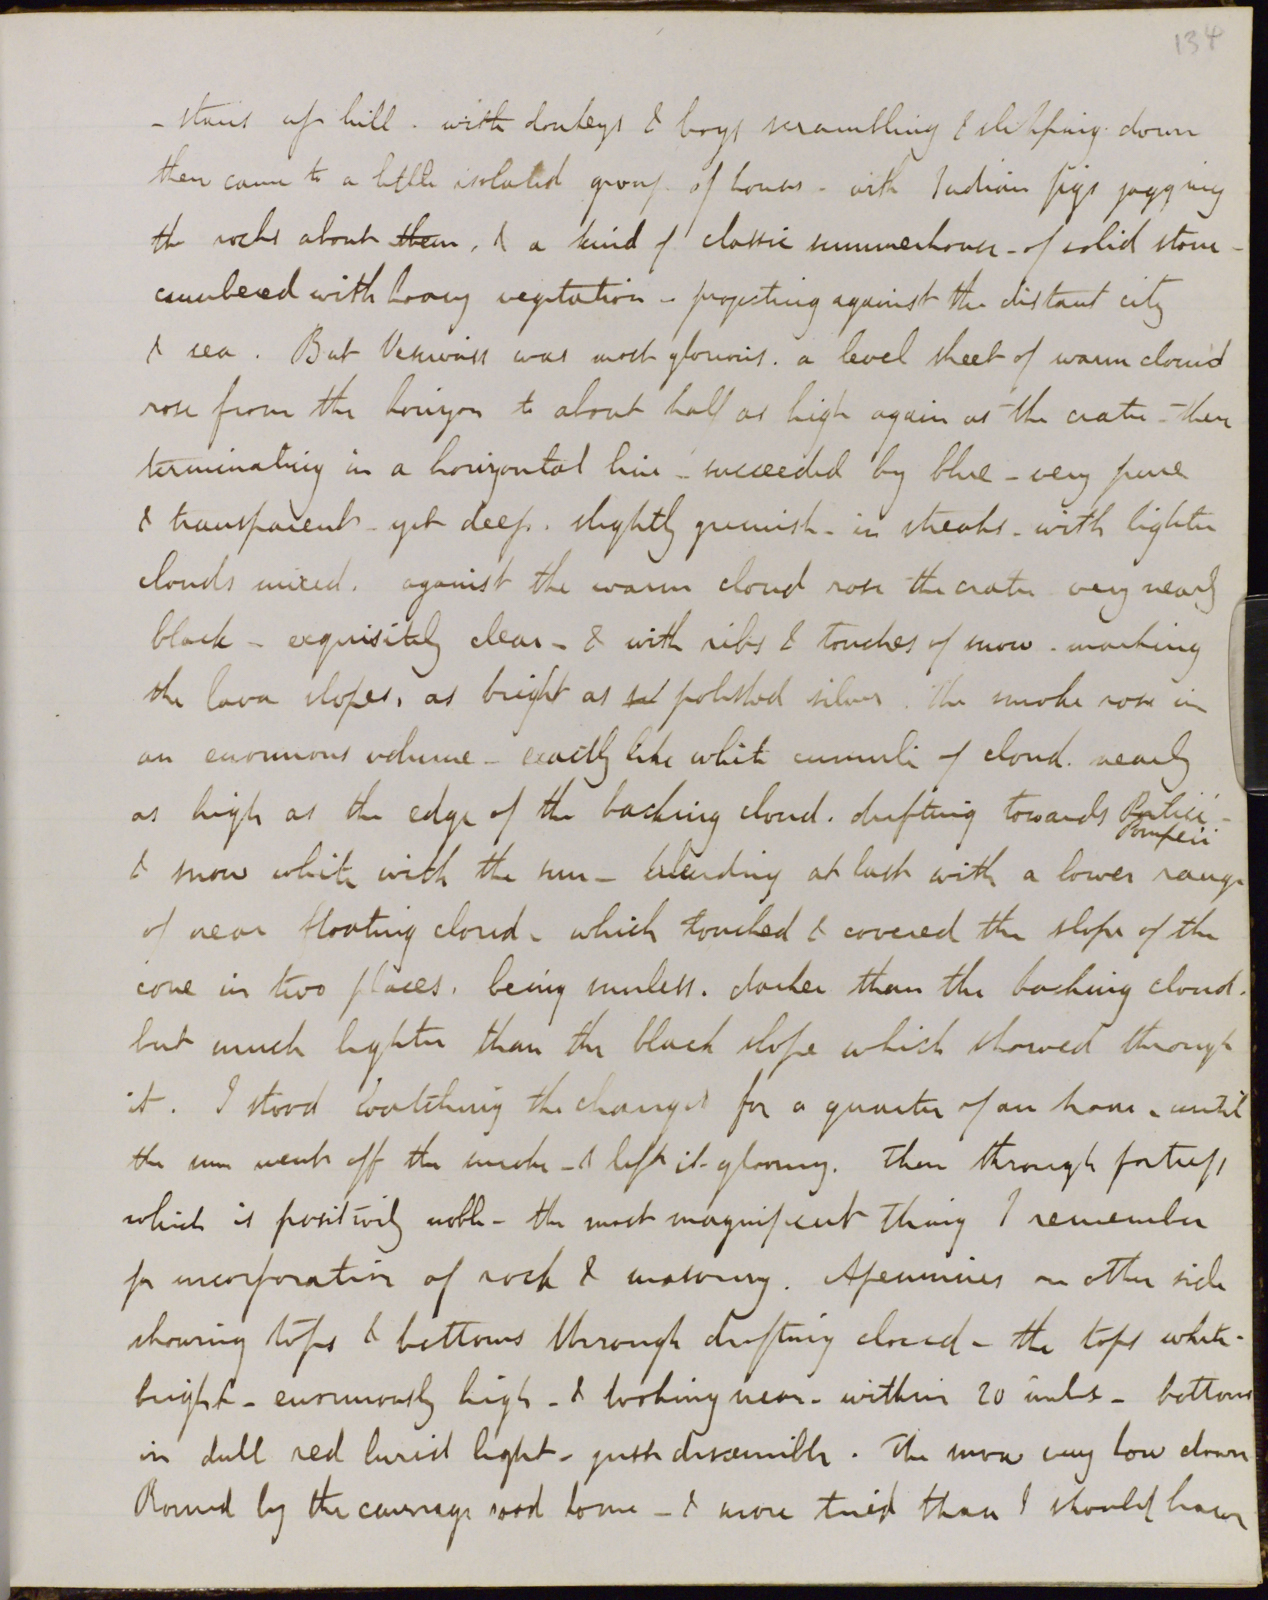 134
- stairs up hill. with donkeys & boys scrambling & slipping down
then came to a little isolated group of houses - with Indian figs jagging
the rocks about them, & a kind of classic summerhouse - of solid stone -
cumbered with heavy vegetation - projecting against the distant city
& sea. But Vesuvius was most glorious. a level sheet of warm cloud
rose from the horizon to about half as high again as the crater - then
terminating in a horizontal line - succeeded by blue - very pure
& transparent - yet deep. slightly greenish - in streaks - with lighter
clouds mixed. against the warm cloud rose the crater very nearly
black - exquisitely clear - & with ribs & touches of snow - marking
the lava slopes, as bright as polished silver. The smoke rose in
an enormous volume - exactly like white cumuli of cloud. nearly
as high as the edge of the backing cloud. drifting towards Portici -
Pompeii
& snow white with the sun - blending at last with a lower range
of near floating cloud - which touched & covered the slope of the
cone in two places. being sunless. darker than the backing cloud.
but much lighter than the black slope which showed through
it. I stood watching the changes for a quarter of an hour - until
the sun went off the smoke - & left it gloomy. Then through fortress
which is positively noble - the most magnificent thing I remember
for incorporation of rock & masonry. Apennines on other side
showing tops & bottoms through drifting cloud - the tops white -
bright - enormously high - & looking near - within 20 miles - bottoms
in dull red lurid light - just discernible. The snow very low down
Round by the carriage road home - & more tired than I should have